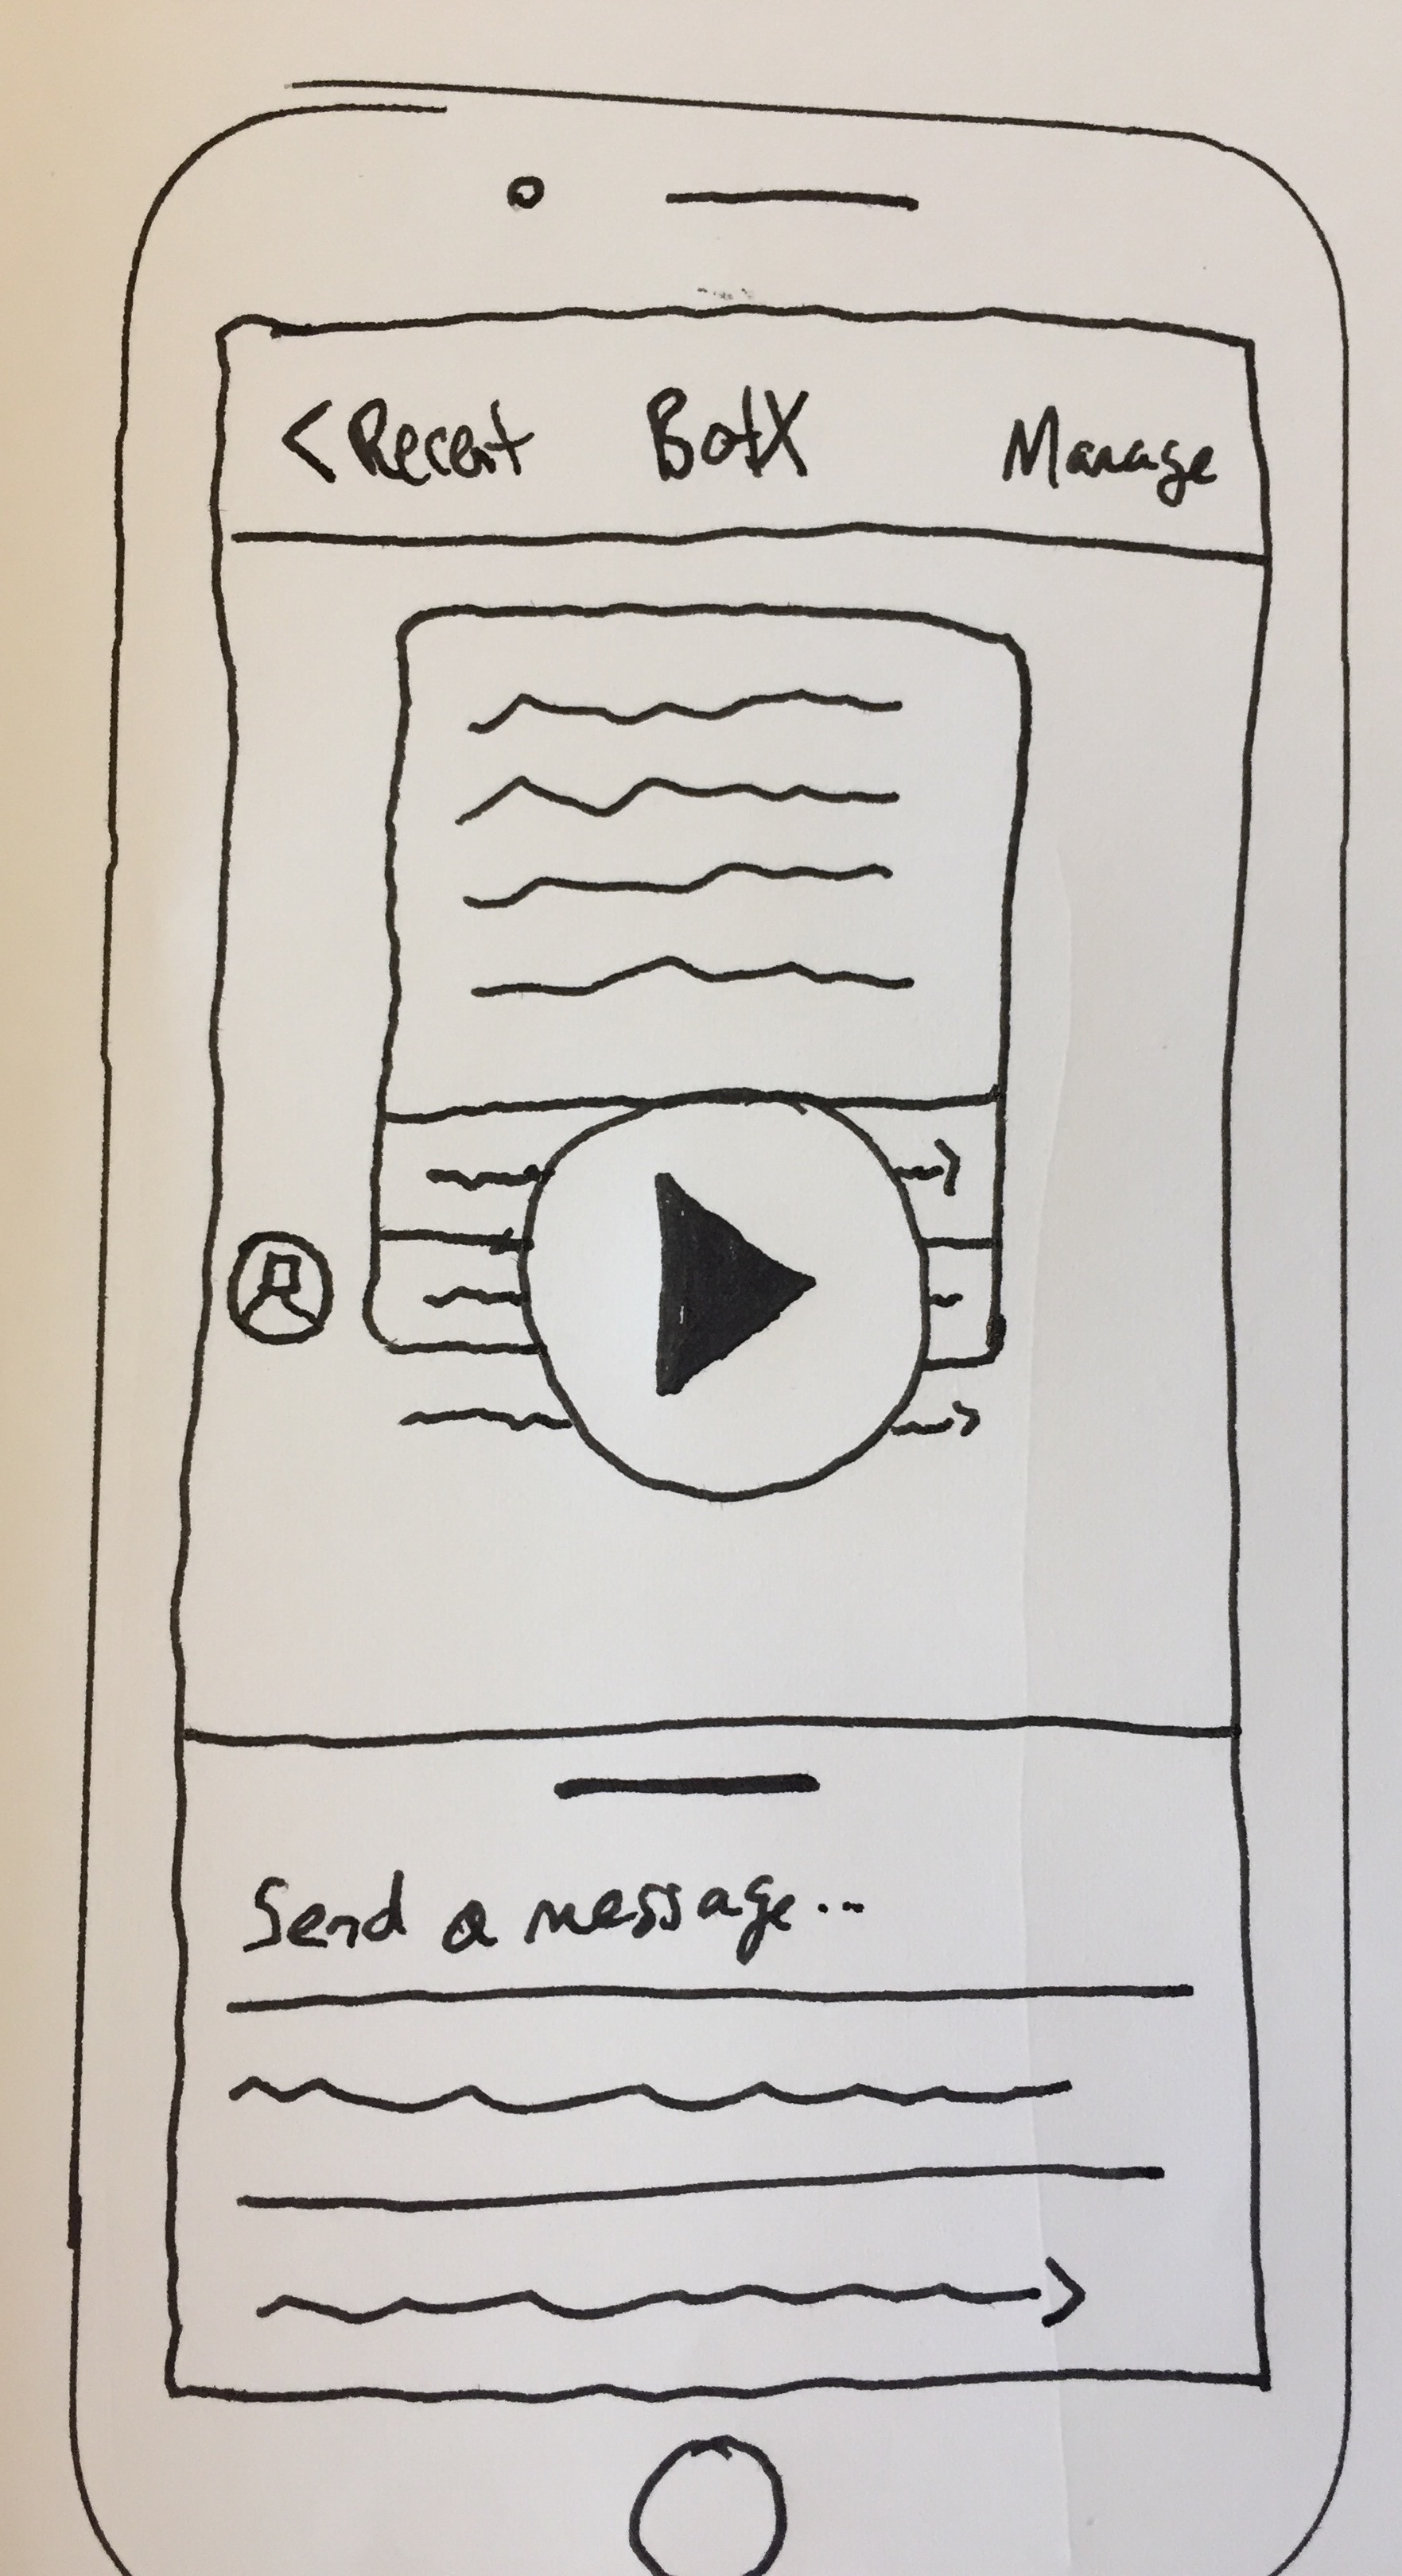 < Recent BotX Manage
Send a message...